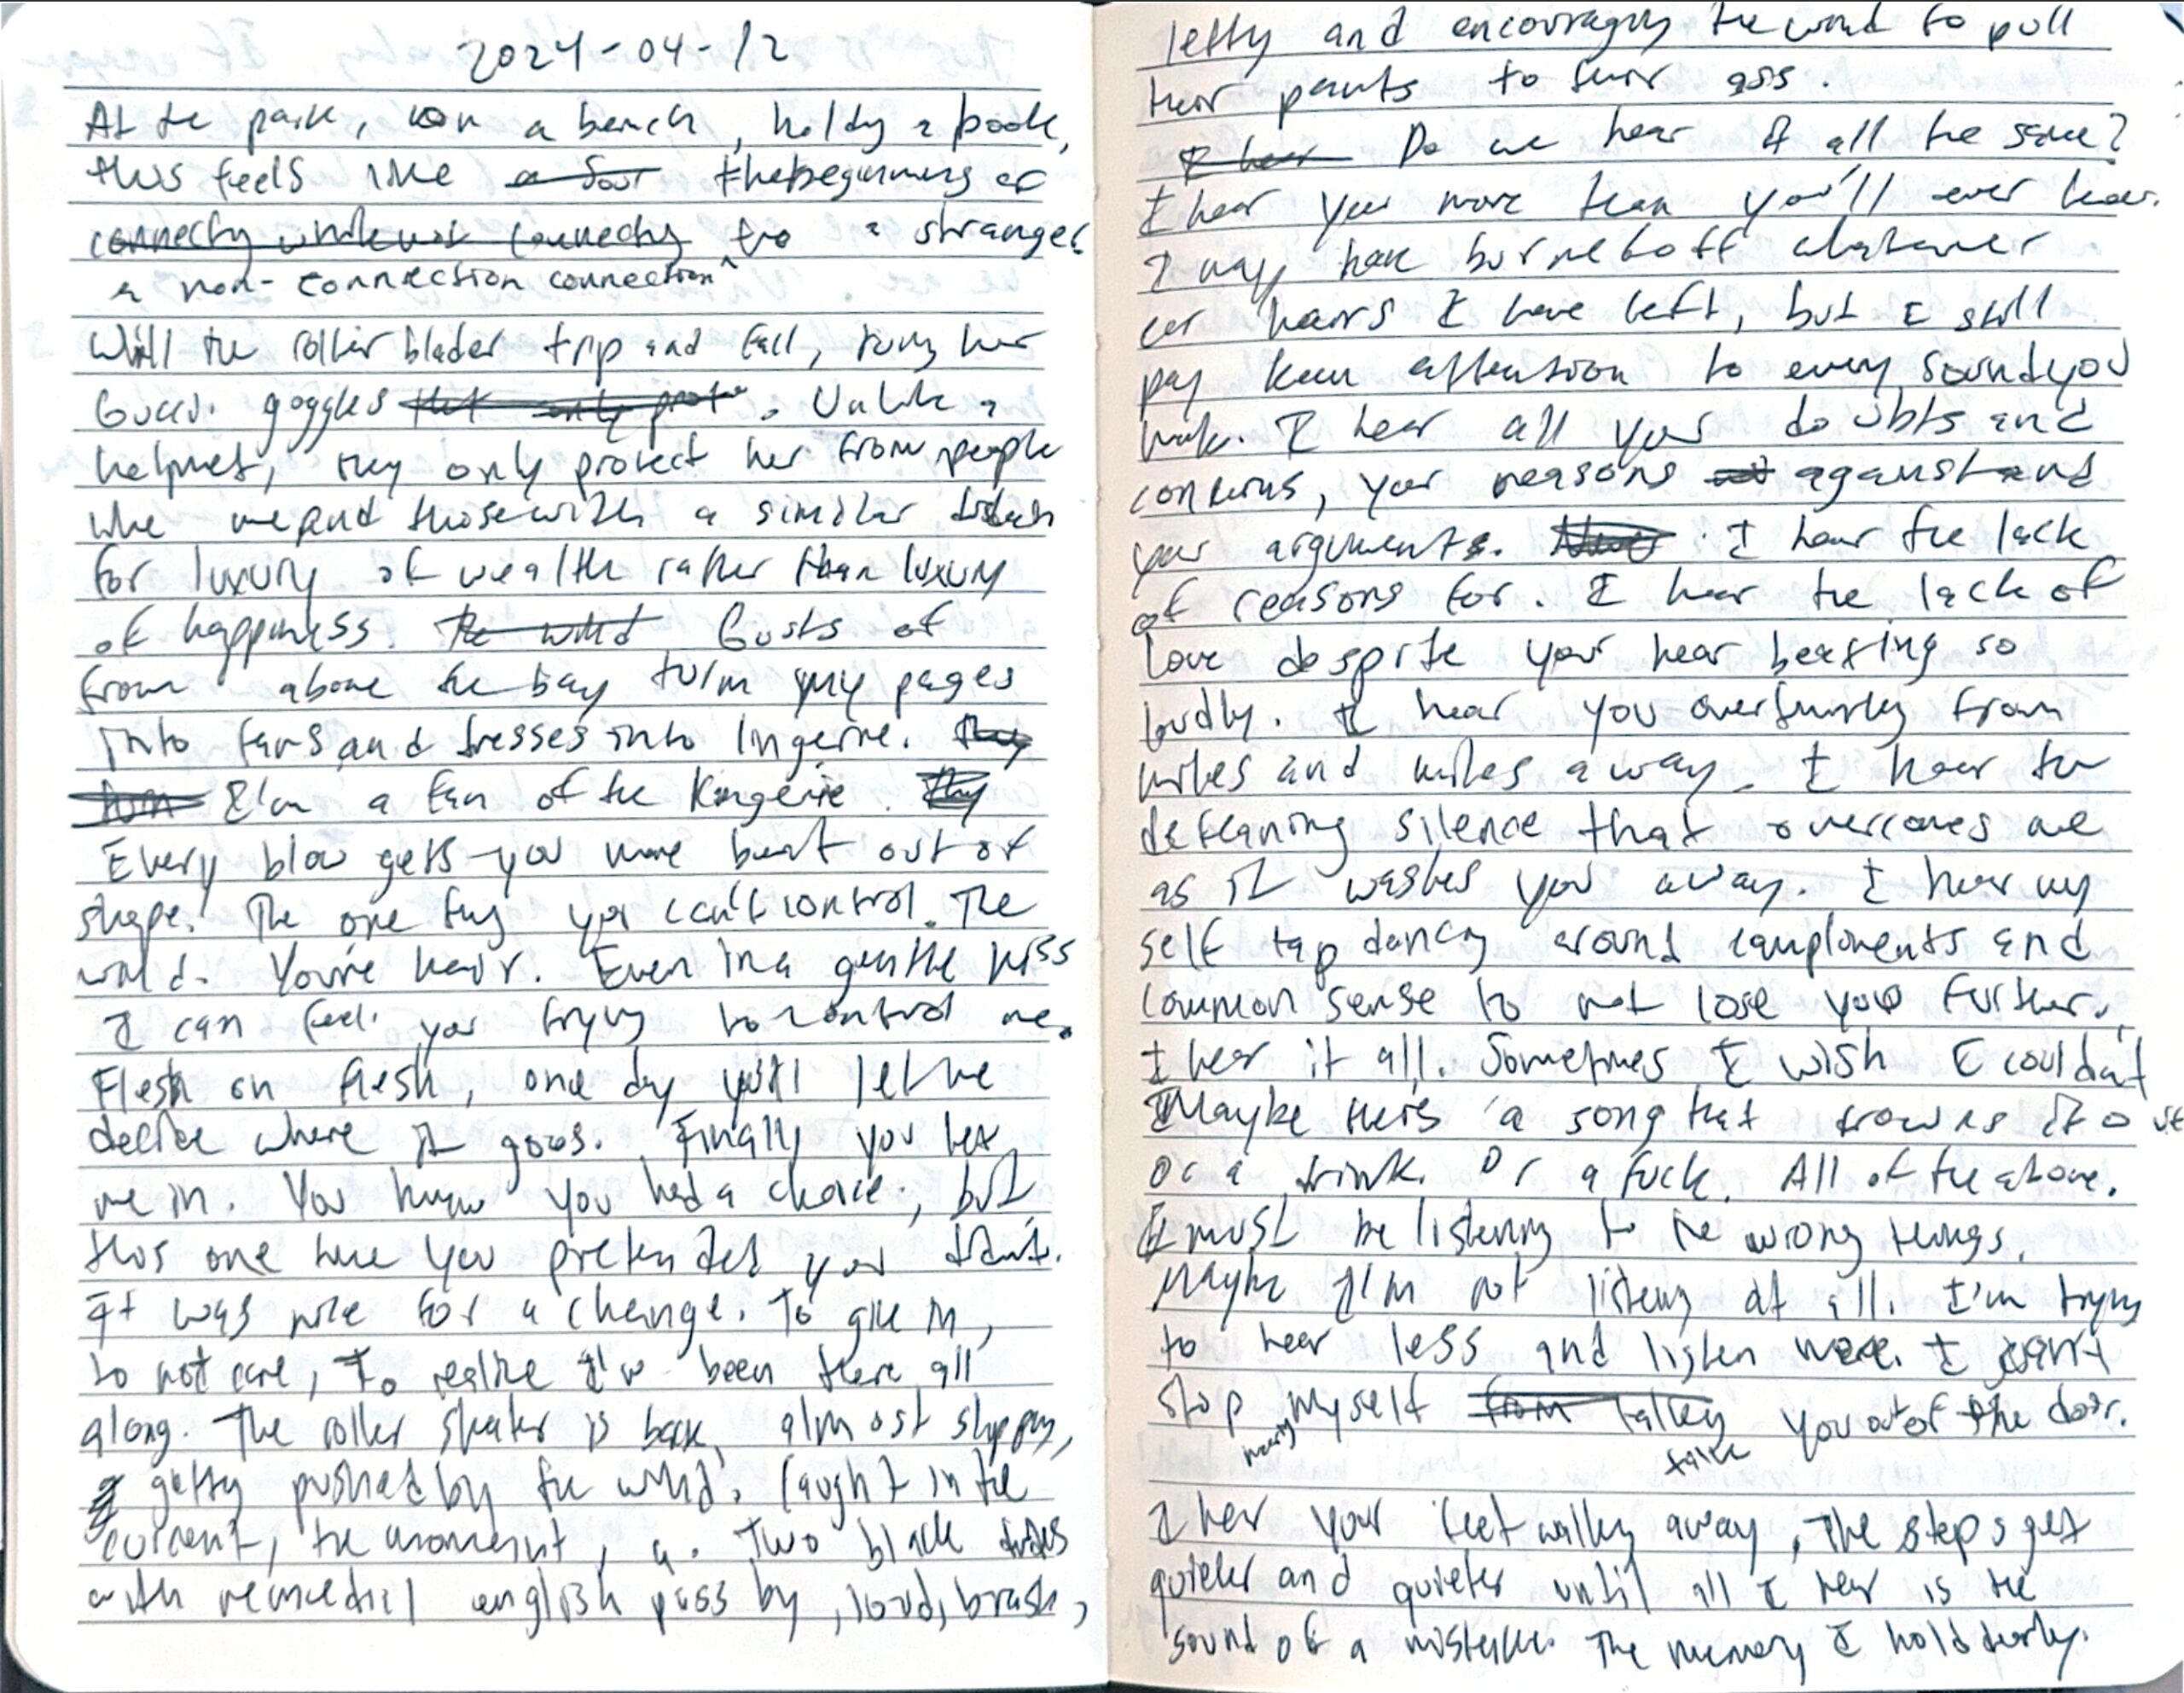 2024-04-12
At the park, on a bench, holding a book,
this feels like a the beginnings of
connecting while not connecting to a stranger
a non-connection connection
Will the roller blader trip and fall, ruing her
Gucci goggles that only prote. Unlike a
helmet, they only protect her from people
like me and those with a similar disdain
for luxury of wealth rather than luxury
of happiness. The wind Gusts of
from above the bay turn my pages
into fans and dresses into lingerie. They
turn I'm a fan of the lingerie. They
Every blow gets you more bent out of
shape. The one thing you can't control. The
wind. You're hair. Even in a gentle kiss
I can feel you trying to control me.
Flesh on flesh, one day you'll let me
decide where it goes. Finally you let
me in. You know you had a choice, but
this one time you pretended you didn't.
It was nice for a change. To give in,
to not care, to realize I've been there all
along. The roller skater is back, almost slipping,
getting pushed by the wind. Caught in the
current, the moment, a. Two black dudes
with remedial english pass by, loud, brash,
letting and encouraging the wind to pull
their pants to their ass.
I hear Do we hear it all the same?
I hear you more than you'll ever hear.
I may have burned off whatever
ear hairs I have left, but I still
pay keen attention to every sound you
make. I hear all your doubts and
concerns, your reasons against and
your arguments. I hear the lack
of reasons for. I hear the lack of
love despite your hear beating so
loudly. I hear you overthinking from
miles and miles away. I hear the
deafening silence that overcomes me
as it washes you away. I hear my
self tap dancing around compliments and
common sense to not lose you further.
I hear it all. Sometimes I wish I couldn't
Maybe there's a song that drowns it out
Or a drink. Or a fuck. All of the above.
I must be listening to the wrong things.
Maybe I'm not listening at all. I'm trying
to hear less and listen more. I can't
stop myself from talking you out of the door.
I hear your feet walking away, The steps get
quieter and quieter until all I hear is the
sound of a mistake. The memory I hold dearly.